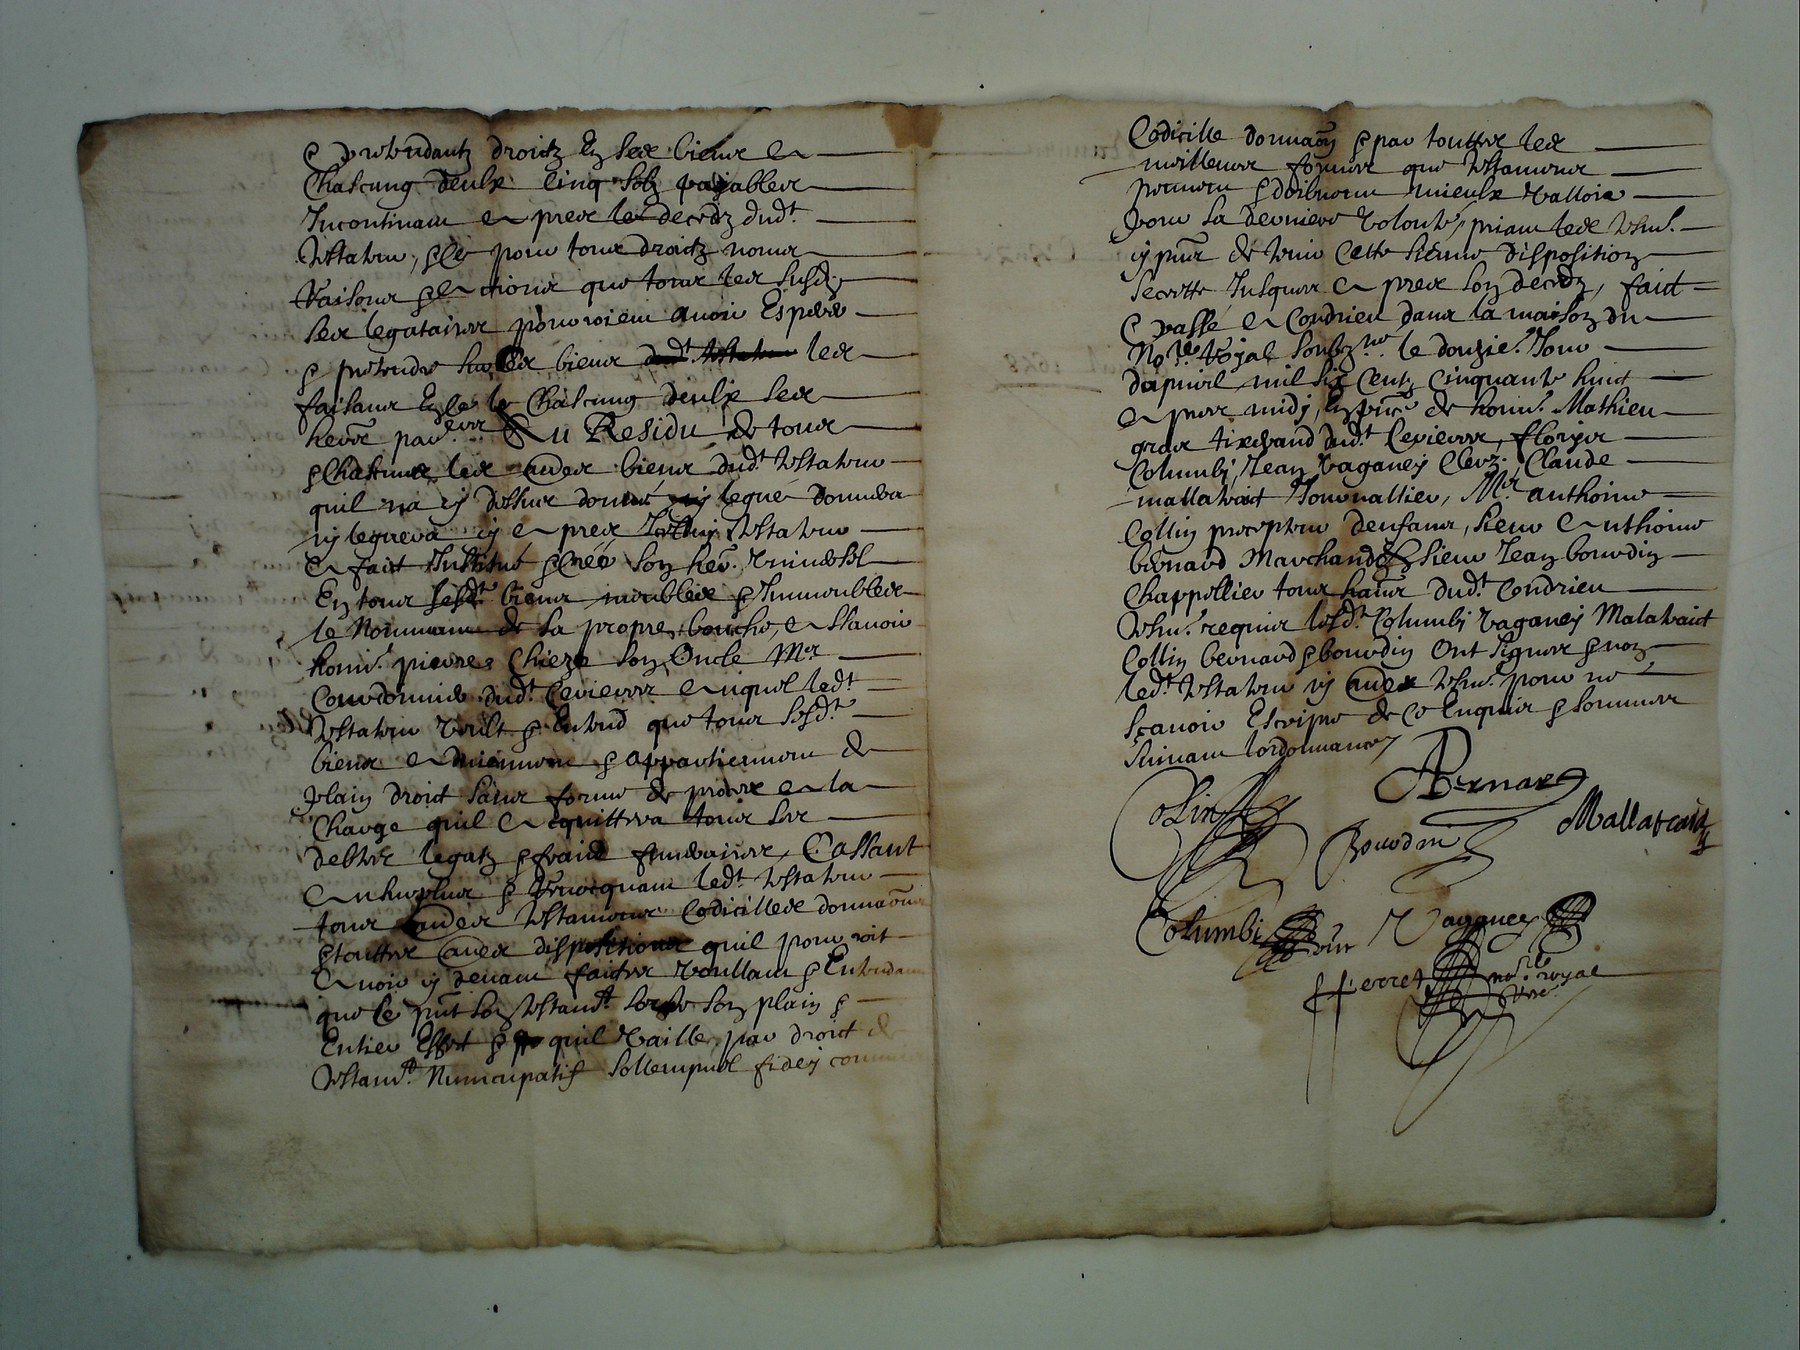 & pretendantz droictz En ses biens a
Chascung deulx Cinq solz payables
Incontinant apres le decedz dudt
testateur, & ce pour tous droictz noms
Raisons & actions que tous les susdz
ses legataires pourroient avoir Esperer
& pretendre sur les biens dudt testateur les
faisant En ce Chascung deulx ses
hers parers Au Residu de tous
& Chascungs les autres biens dudt testateur
quil na cy dessus donné ny legué donnera
ny leguera cy apres testateur
a fait Institué & Créé son her. universel
En tous sesdt biens meubles & Immeubles
le Nommant de sa propre bouche, a sçavoir
honn. pierre Chieze son Oncle Mer
Courdonnier dudt auquel ledt
testateur veult & Entend que tous sesdt
biens adviennent & appartiennent de
plain droict sans forme de proces a la
Charge quil acquittera tous ses
debtes legatz & frais funeraires, Cassant
au surplus & Revocquant ledt testateur
tous autres testamens Codicilles donnaons
& touttes autres dispositions quil pourroit
avoir cy devant faictes voullant & Entendant
que le pnt son testamt sorte son plain &
Entier Effect & quil vaille par droict de
testamt Nuncupatif sollempnel fidey
Codicille donnaon & par touttes les
meilleures formes que testamens
peuvent & doibvent mieulx valloir
pour sa derniere volonté, priant les tesm.
cy pnts de tenir Cette sienne disposition
secrette Jusques apres son decedz, faict
& passé a Condrieu dans la maison du
Nore Royal soubzne le douzie. Jour
dapvril mil six Centz Cinquante huict
apres midy, En pnce de honn. Mathieu
gras tixerand dudt Florys
Columbi, Jean vaganey Clerz. Claude
mallatraict Journallier, Me anthoine
Collin precepteur denfans, sieur Anthoine
bernard Marchand & sieur Jean bourdin
Chappellier tous hans dudt Condrieu
tesm. requis lesdt Columbi vaganey Malatraict
Collin bernard & bourdin Ont signes & non
ledt testateur ny autres tesm. pour ne
sçavoir Escripre de ce Enquis & sommes
suivant lordonnance
Colin
ABernard
Bourdin
Mallatraict
Columbi
Vagganey
Ferret nore royal